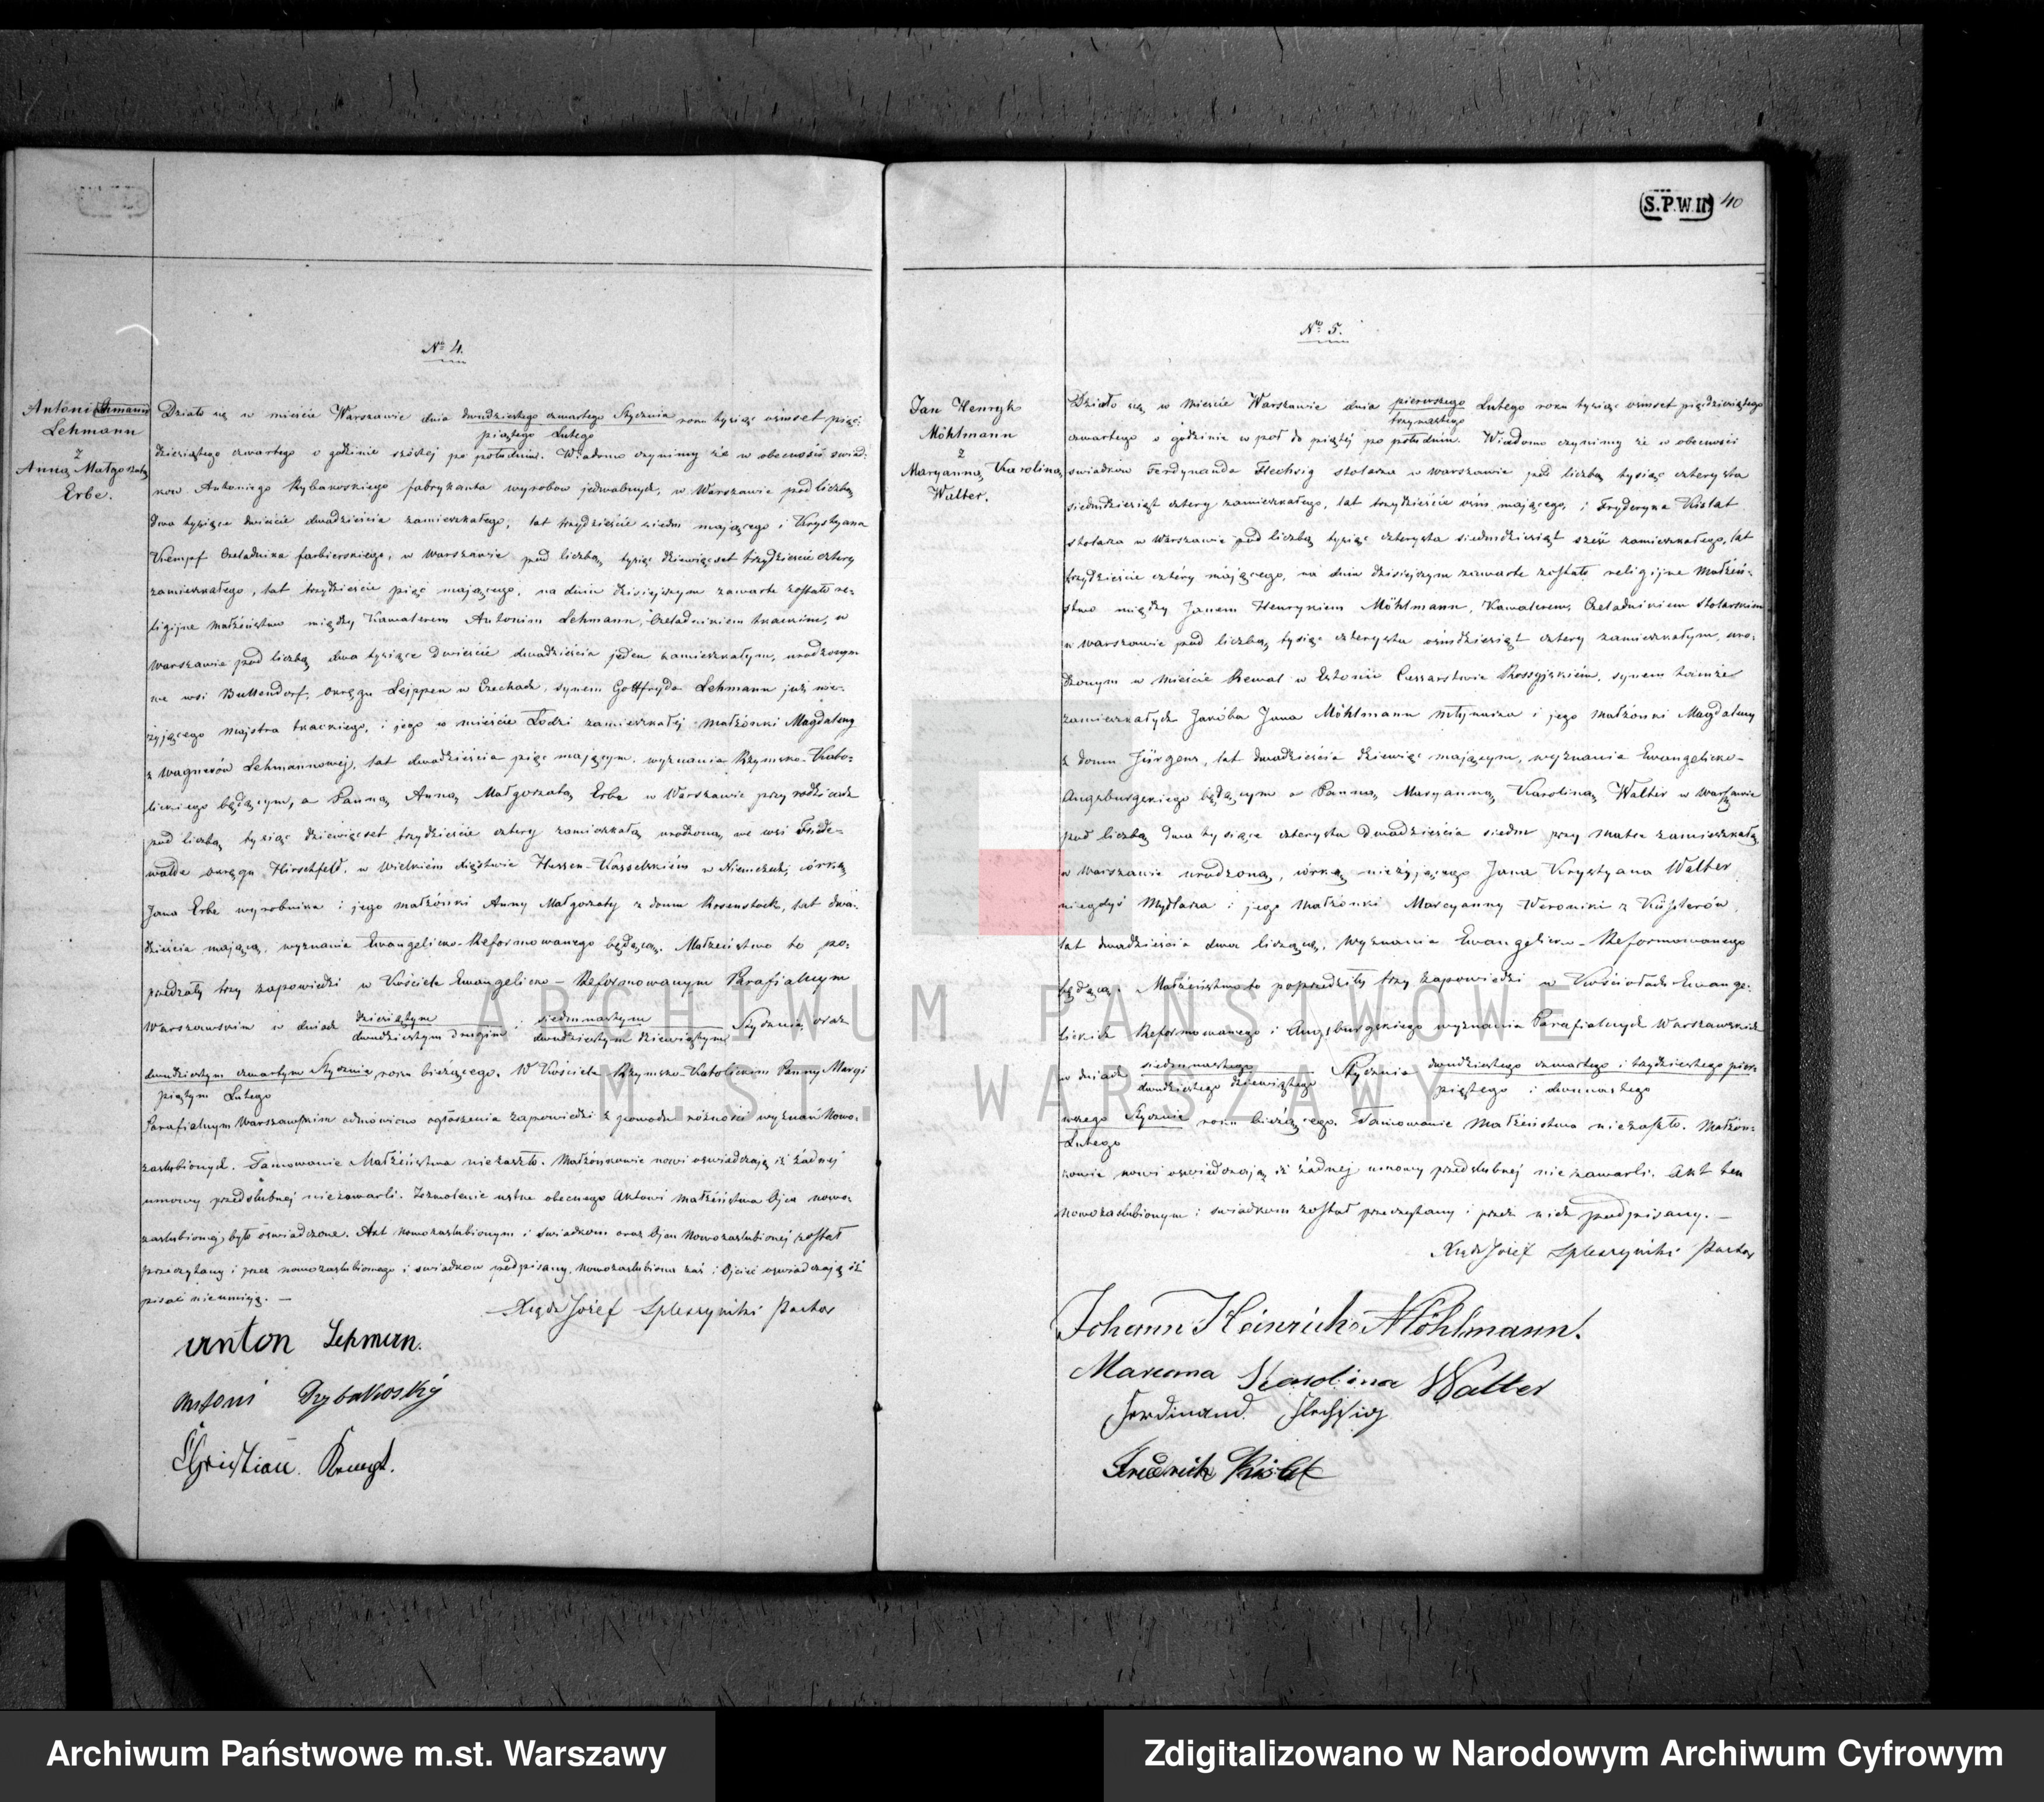 S.P.W.II. 40
No 4.
Antoni Lehmann
Lehmann
z
Anną Małgorzatą
Erbe.
Działo się w mieście Warszawie dnia dwudziestego czwartego Stycznia roku tysiąc ośmset pięć-
piątego Lutego
dziesiątego czwartego o godzinie szóstej po południu. Wiadomo czynimy że w obecności świad-
ków Antoniego Rybakowskiego fabrykanta wyrobów jedwabnych, w Warszawie pod liczbą
dwa tysiące dwieście dwadzieścia zamieszkałego, lat trzydzieście siedm mającego i Krystyana
Kempf Czeladnika farbierskiego, w Warszawie pod liczbą tysiąc dziewięćset trzydzieście cztery
zamieszkałego, lat trzydzieście pięć mającego, na dniu dzisiejszym zawarte zostało re-
ligijne małżeństwo między Kawalerem Antonim Lehmann, Czeladnikiem tkackim, w
Warszawie pod liczbą dwa tysiące dwieście dwadzieścia jeden zamieszkałym, urodzonym
we wsi Bullendorf, okręgu Leippen w Czechach, synem Gottfryda Lehmann już nie-
żyjącego majstra tkackiego, i jego w mieście Łodzi zamieszkałej małżonki Magdaleny
z Wagnerów Lehmannowej, lat dwadzieścia pięć mającym, wyznania Rzymsko-Kato-
lickiego będącym, a Panną Anną Małgorzatą Erbe w Warszawie przy rodzicach
pod liczbą tysiąc dziewięćset trzydzieście cztery zamieszkałą urodzoną we wsi Friede-
walde okręgu Hirschfeld, w Wielkiém Xięstwie Hessen-Kasselskiém w Niemczech, córką
Jana Erbe wyrobnika i jego małżonki Anny Małgorzaty z domu Rosenstock, lat dwa-
dzieścia mającą, wyznania Ewangelicko-Reformowanego będącą. Małżeństwo to po-
przedzały trzy zapowiedzi w Kościele Ewangelicko-Reformowanym Parafialnym
Warszawskim w dniach dziesiątym i siedmnastym Stycznia, oraz
dwudziestym drugim dwudziestym dziewiątym
dwudziestym czwartym Stycznia roku bieżącego. W Kościele Rzymsko-Katolickim Panny Maryi
piątym Lutego
Parafialnym Warszawskim odmówiono ogłoszenia zapowiedzi z powodu różności wyznań Nowo-
zaślubionych. Tamowanie Małżeństwa niezaszło. Małżonkowie nowi oświadczają iż żadnej
umowy przedślubnej niezawarli. Zezwolenie ustne obecnego Aktowi małżeństwa Ojca nowo-
zaślubionej było oświadczone. Akt nowozaślubionym i świadkom oraz Ojcu Nowozaślubionej został
przeczytany i przez nowozaślubionego i świadków podpisany, nowozaślubiona zaś i Ojciec oświadczają iż
pisać nieumieją. —
Xiądz Józef Spleszyński Pastor
Anton Lehman.
Antoni Rybakoský
Christian Kempf.
No 5.
Jan Henryk
Möhlmann
z
Maryanną Karoliną
Walter.
Działo się w Mieście Warszawie dnia pierwszego Lutego roku tysiąc ośmset pięćdziesiątego
trzynastego
czwartego o godzinie w pół do piątej po południu. Wiadomo czynimy że w obecności
świadków Ferdynanda Flechsig stolarza w Warszawie pod liczbą tysiąc czterysta
siedmdziesiąt cztery zamieszkałego, lat trzydzieście ośm mającego, i Fryderyka Kislat
stolarza w Warszawie pod liczbą tysiąc czterysta siedmdziesiąt sześć zamieszkałego, lat
trzydzieście cztéry mającego, na dniu dzisiejszym zawarte zostało religijne Małżeń-
stwo między Janem Henrykiem Möhlmann, Kawalerem, Czeladnikiem stolarskim
w Warszawie pod liczbą tysiąc czterysta ośmdziesiąt cztery zamieszkałym, uro-
dzonym w Mieście Rewal w Estonii Cesarstwie Rossyjskiém, synem tamże
zamieszkałych Jakóba Jana Möhlmann młynarza i jego małżonki Magdaleny
z domu Jürgens, lat dwadzieścia dziewięć mającym, wyznania Ewangelicko-
Augsburgskiego będącym a Panną Maryanną Karoliną Walter w Warszawie
pod liczbą dwa tysiące czterysta dwadzieścia siedm przy Matce zamieszkałą,
w Warszawie urodzoną, córką nieżyjącego Jana Krystyana Walter
niegdyś Mydlarza i jego małżonki Maryanny Weroniki z Küsterów,
lat dwadzieścia dwa liczącą, wyznania Ewangelicko-Reformowanego
będącą. Małżeństwo to poprzedziły trzy zapowiedzi w Kościołach Ewange-
lickich Reformowanego i Augsburgskiego wyznania Parafialnych Warszawskich
w dniach siedmnastego Stycznia dwudziestego czwartego i trzydziestego pier-
dwudziestego dziewiątego piątego i dwunastego
wszego Stycznia roku bieżącego. Tamowanie Małżeństwa niezaszło. Małżon-
Lutego
kowie nowi oświadczają iż żadnej umowy przedślubnej niezawarli. Akt ten
nowozaślubionym i świadkom został przeczytany i przez nich podpisany. —
Xiądz Józef Spleszyński Pastor
Johann Heinrich Möhlmann.
Marianna Karolina Walter
Ferdinand Flechsig
Friedrich Kislat
ARCHIWUM PAŃSTWOWE
M.ST. WARSZAWY
Archiwum Państwowe m.st. Warszawy
Zdigitalizowano w Narodowym Archiwum Cyfrowym